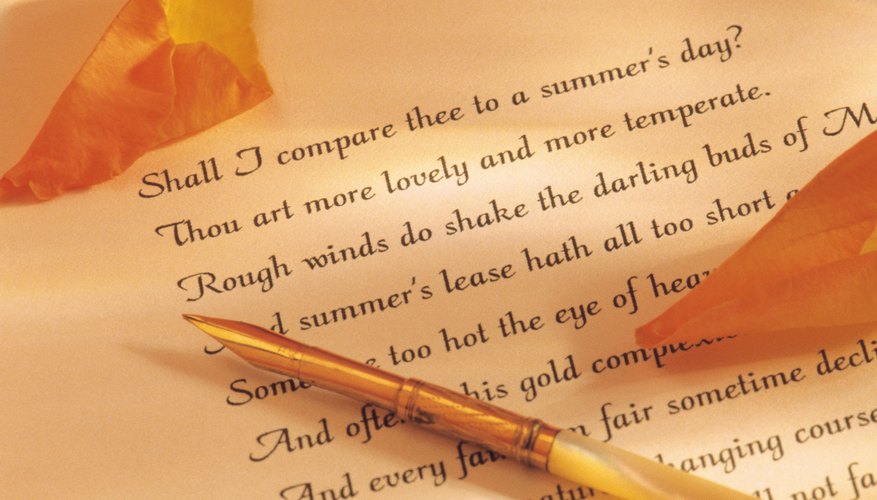 Shall I compare thee to a summer's day?
Thou art more lovely and more temperate.
Rough winds do shake the darling buds of
summer's lease hath all too short
too hot the eye of
his gold
And fair sometime
And every changing course
not